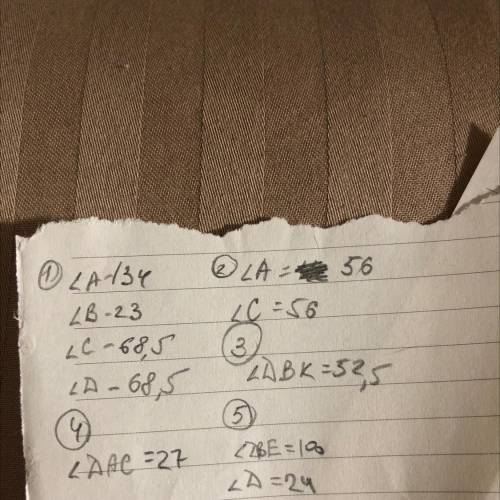 ① ∠A-134
∠B-23
∠C-68,5
∠D-68,5
② ∠A = 56
∠C = 56
③
∠DBK=52,5
④
∠DAC=27
⑤
∠DBE=100
∠D=24